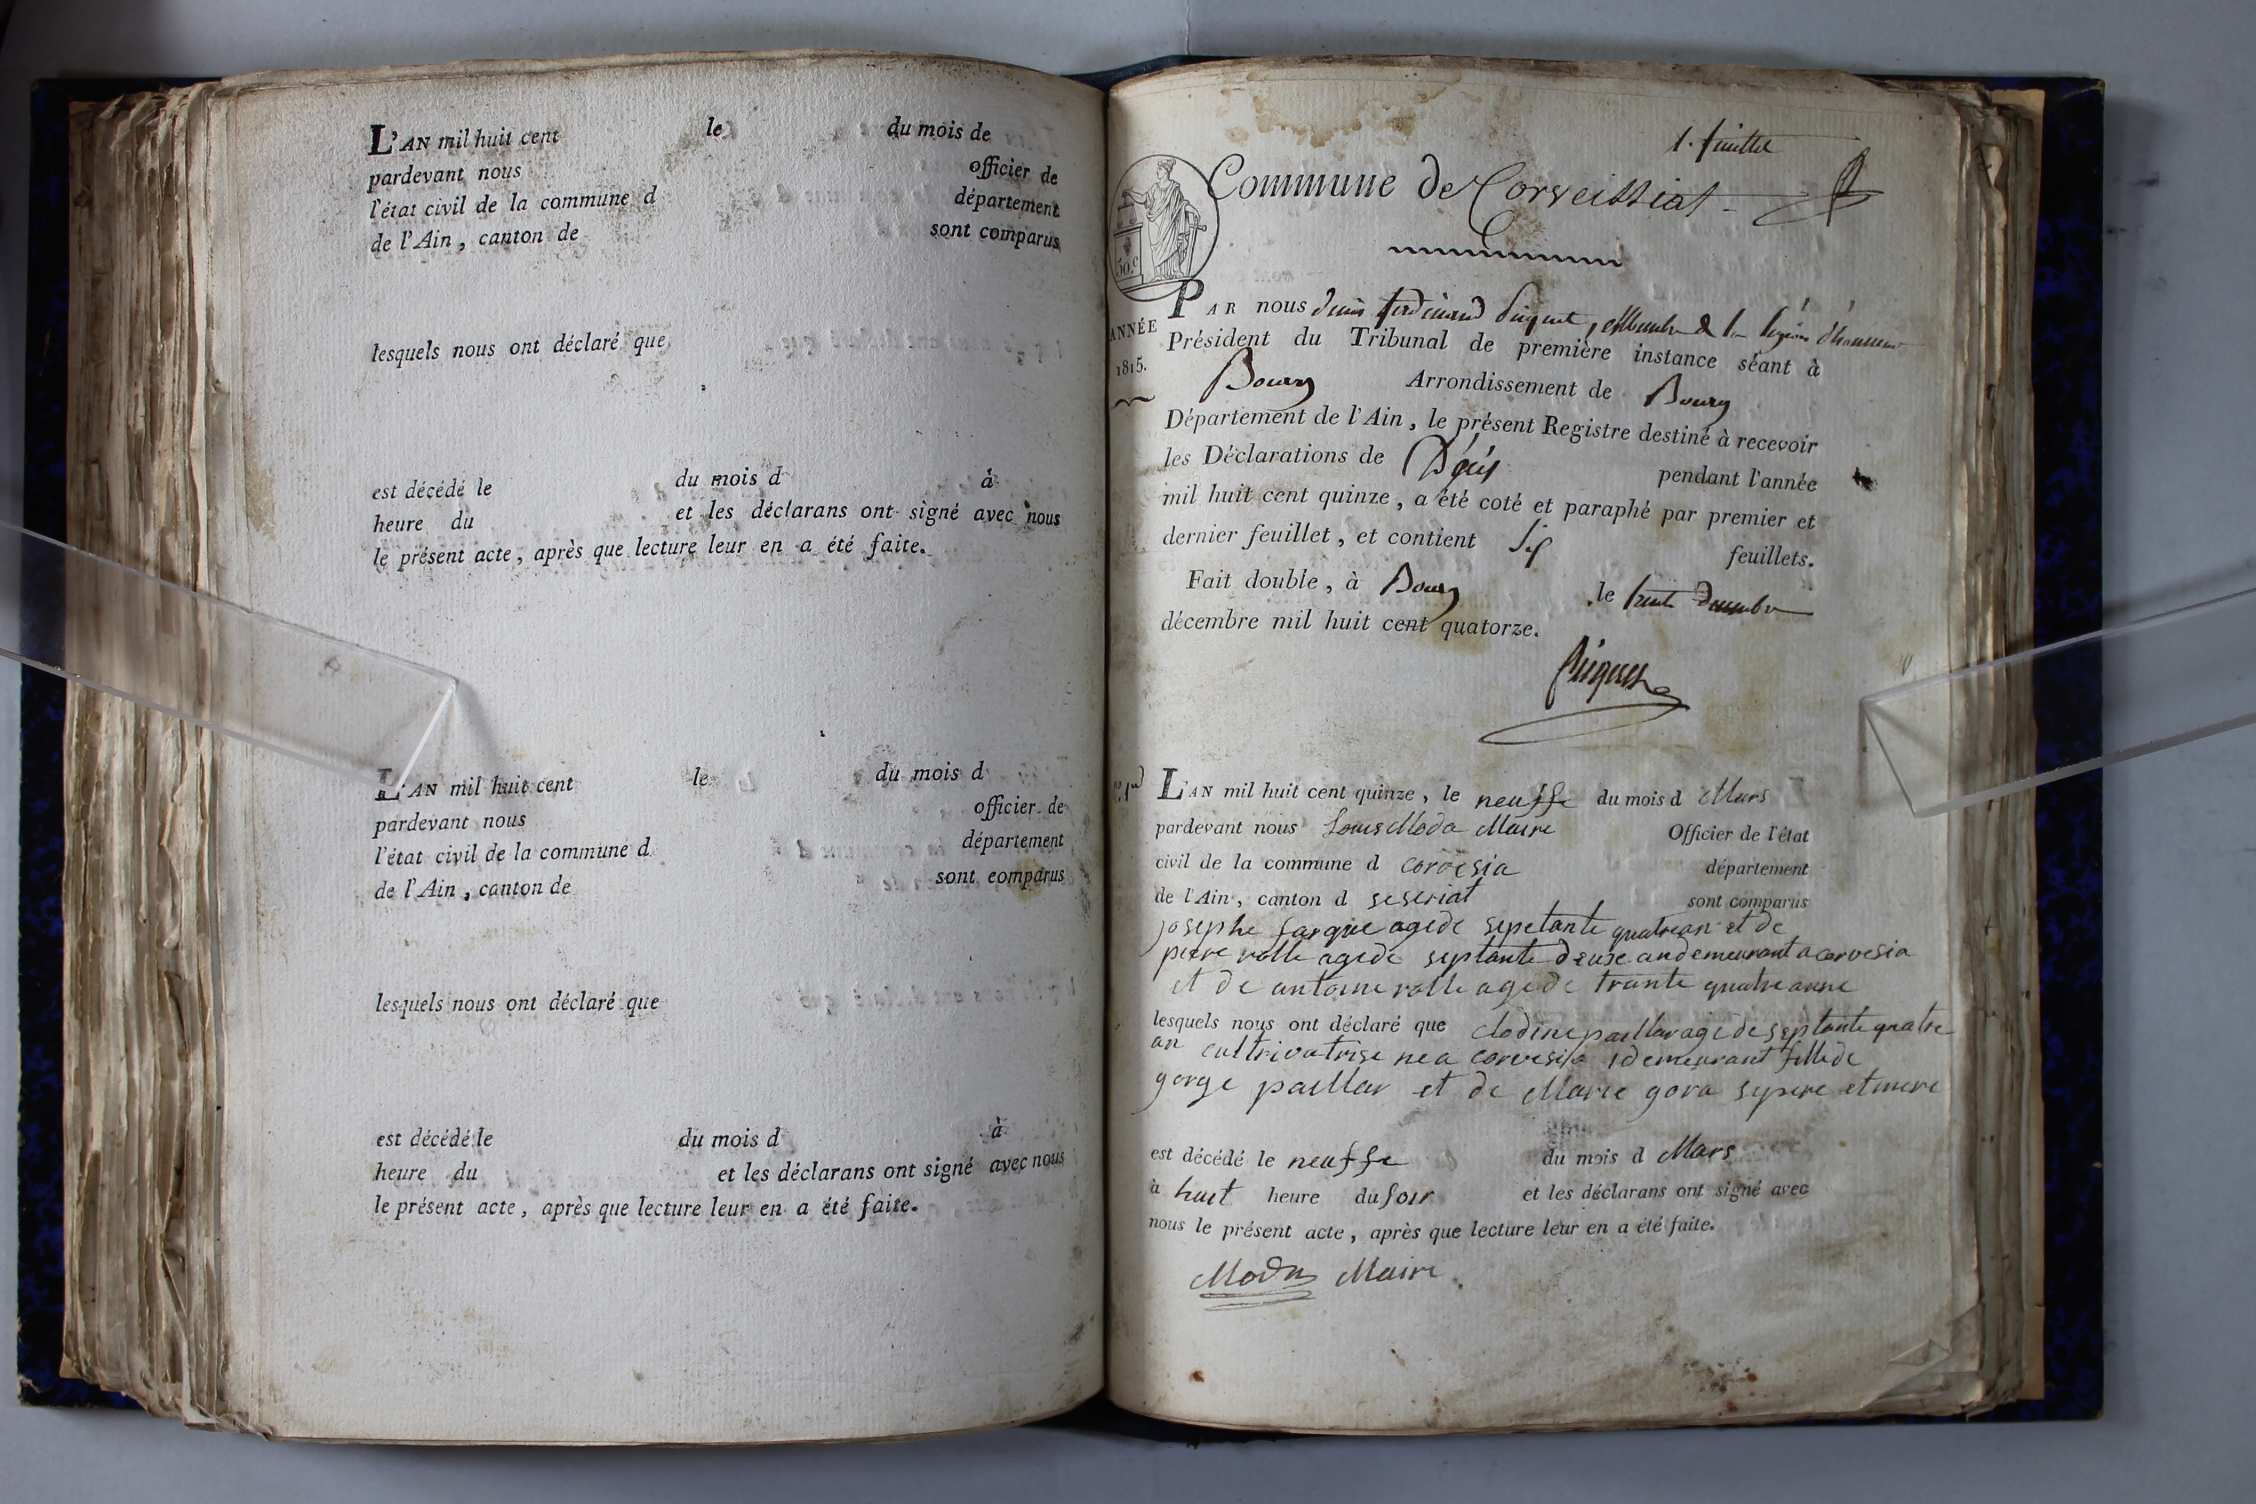 L'AN mil huit cent le du mois de
pardevant nous officier de
l'état civil de la commune d département
de l'Ain, canton de sont comparus
lesquels nous ont déclaré que
est décédé le du mois d à
heure du et les déclarans ont signé avec nous
le présent acte, après que lecture leur en a été faite.
L'AN mil huit cent le du mois d
pardevant nous officier de
l'état civil de la commune d département
de l'Ain, canton de sont comparus
lesquels nous ont déclaré que
est décédé le du mois d à
heure du et les déclarans ont signé avec nous
le présent acte, après que lecture leur en a été faite.
1. feuillet
Commune de Corveissiat
50.c
ANNÉE
1815.
PAR nous ferdinand Piquet, Membre de la légion d'honneur
Président du Tribunal de première instance séant à
Bourg Arrondissement de Bourg
Département de l'Ain, le présent Registre destiné à recevoir
les Déclarations de Décès pendant l'année
mil huit cent quinze, a été coté et paraphé par premier et
dernier feuillet, et contient six feuillets.
Fait double, à Bourg le huit Decembre
décembre mil huit cent quatorze.
Piquet
L'AN mil huit cent quinze, le neuffe du mois d Mars
pardevant nous Louis Moda Maire Officier de l'état
civil de la commune d corvesia département
de l'Ain, canton d seseriat sont comparus
josephe farque agede sepetante quatrean et de
piere rolle agede septante deuse an demeurant a corvesia
et de antoine rolle agede trante quatre anne
lesquels nous ont déclaré que clodine paillar agede septante quatre
an cultrivatrise nea corvesia idemeurant fillede
gorge paillar et de Marie gora sypere etmere
est décédé le neuffe du mois d Mars
à huit heure du soir et les déclarans ont signé avec
nous le présent acte, après que lecture leur en a été faite.
Moda Maire